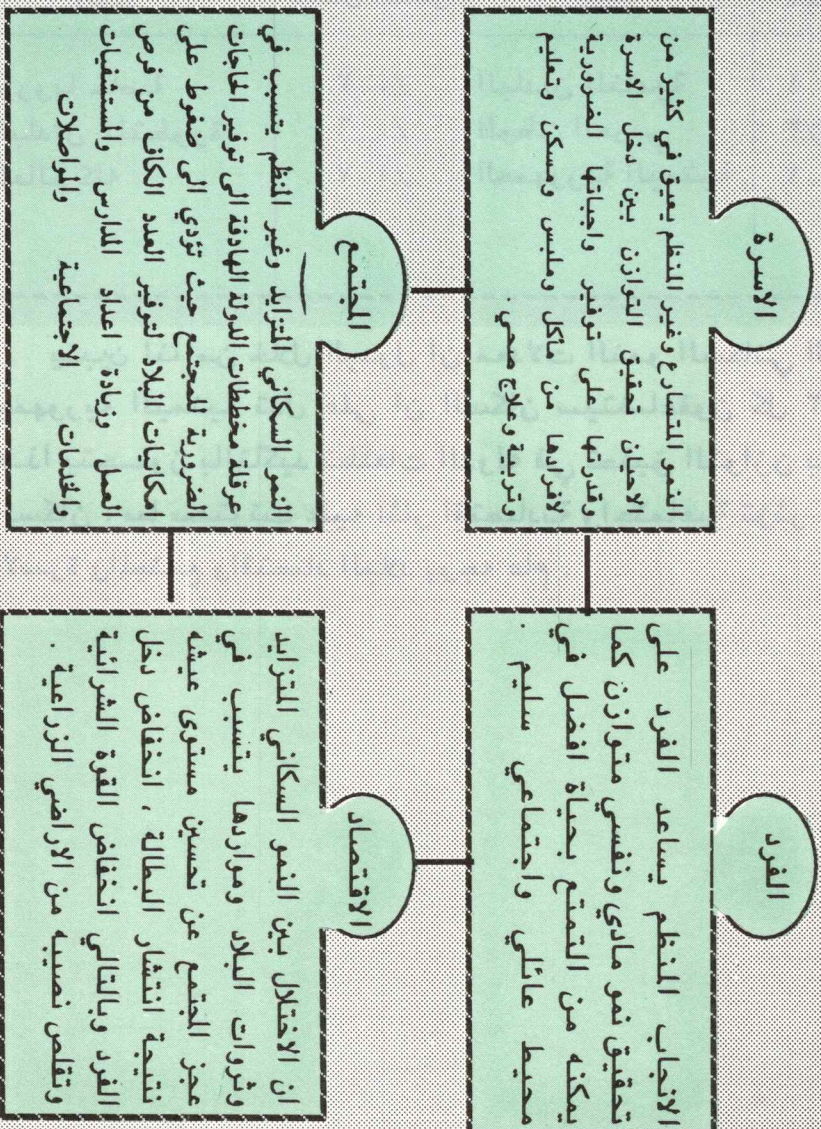 الفرد
الانجاب المنظم يساعد الفرد على
تحقيق نمو مادي ونفسي متوازن كما
يمكنه من التمتع بحياة افضل في
محيط عائلي واجتماعي سليم .
الاسرة
النمو المتسارع وغير المنظم يعيق في كثير من
الاحيان تحقيق التوازن بين دخل الاسرة
وقدرتها على توفير واجباتها الضرورية
لافرادها من مأكل وملبس وسكن وتعليم
وتربية وعلاج صحي
الاقتصاد
ان الاختلال بين النمو السكاني المتزايد
وثروات البلاد ومواردها يتسبب في
عجز المجتمع عن تحسين مستوى عيشه
نتيجة انتشار البطالة ، انخفاض دخل
الفرد وبالتالي انخفاض القوة الشرائية
وتقلص نصيبه من الاراضي الزراعية .
المجتمع
النمو السكاني المتزايد وغير المنظم يتسبب في
عرقلة مخططات الدولة الهادفة الى توفير الحاجات
الضرورية للمجتمع حيث تؤدي الى ضغوط على
امكانيات البلاد لتوفير العدد الكاف من فرص
العمل وزيادة اعداد المدارس والمستشفيات
والخدمات الاجتماعية والمواصلات